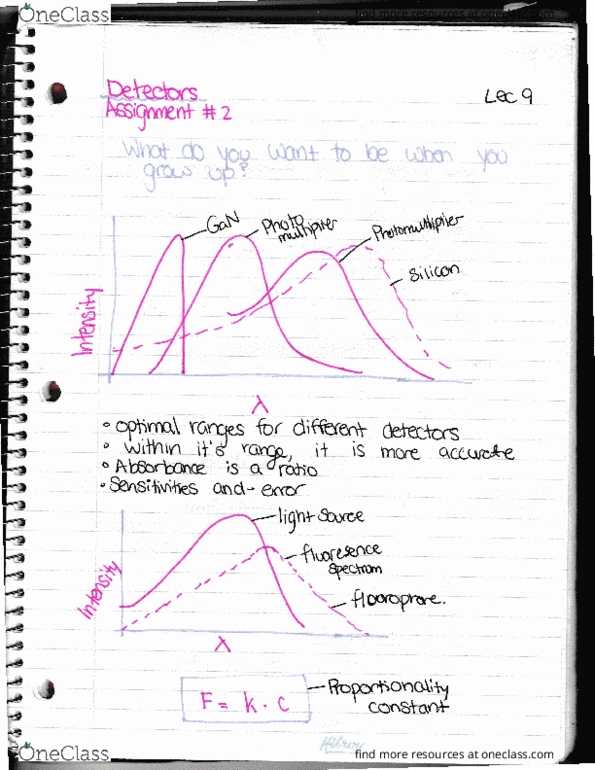 OneClass
find more resources at oneclass.com
Detectors
Lec 9
Assignment # 2
What do you want to be when you
grow up?
GaN
Photo
multiplier
Photomultiplier
Silicon
Intensity
λ
• optimal ranges for different detectors
• within it's range, it is more accurate
• Absorbance is a ratio
• Sensitivities and error
light source
fluoresence
spectrum
fluoroprore.
Intensity
λ
F = k · c
Proportionality
constant
Hilroy
OneClass
find more resources at oneclass.com